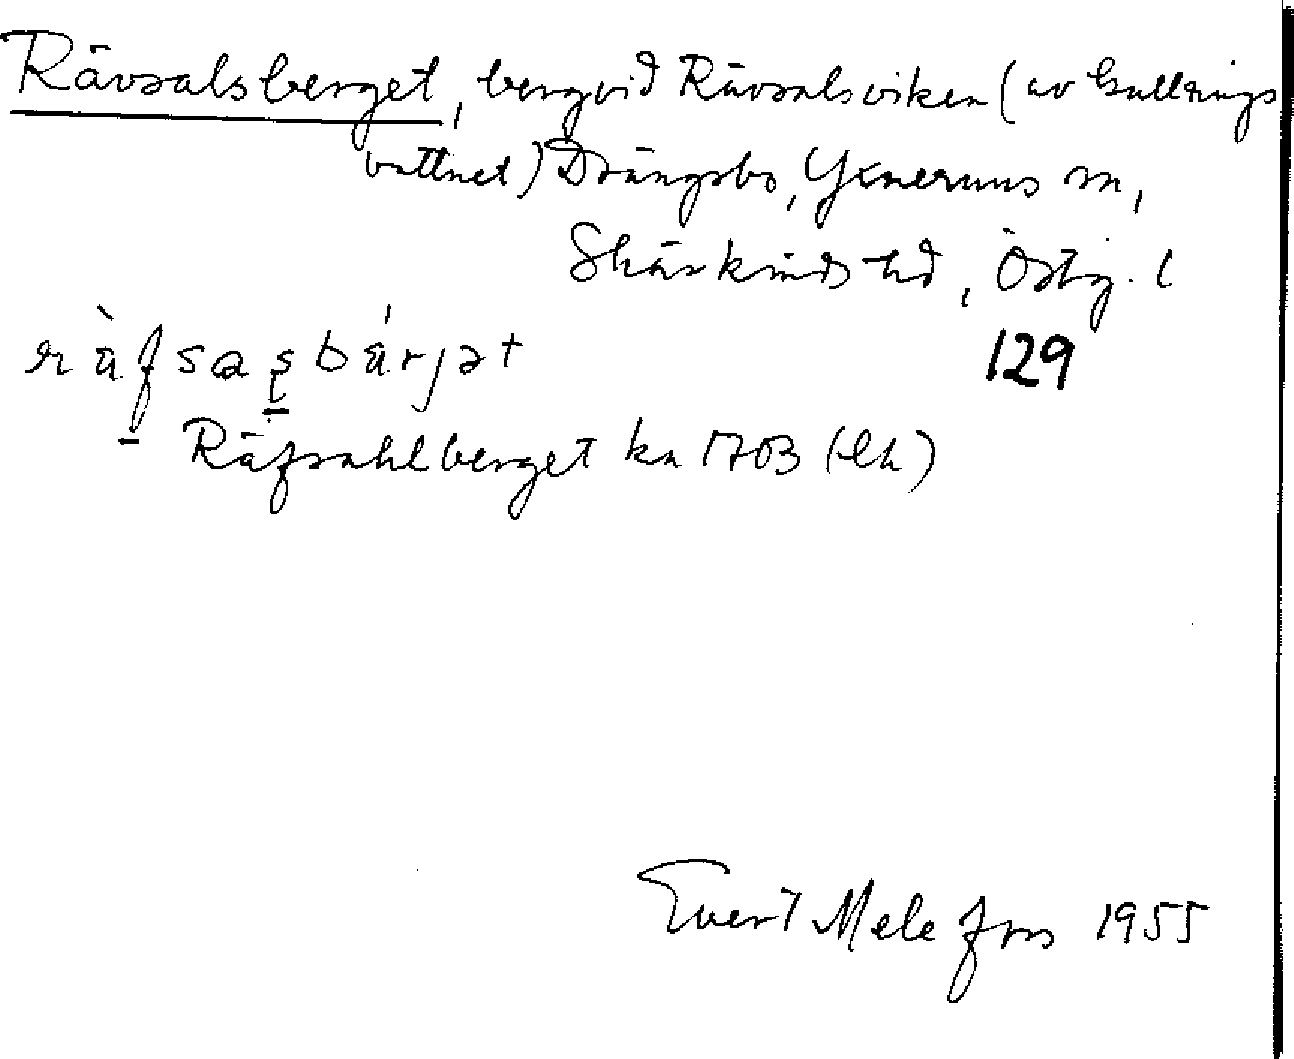 Rävsalsberget, berg vid Rävsalsviken (av Gullrings
vattnet) Drängsbo, Yxnerums sn,
Skärkinds hd, Östg. l
129
räfsaʂbärjət
Räfsahlberget ka 1703 (LA)
Evert Melefors 1955